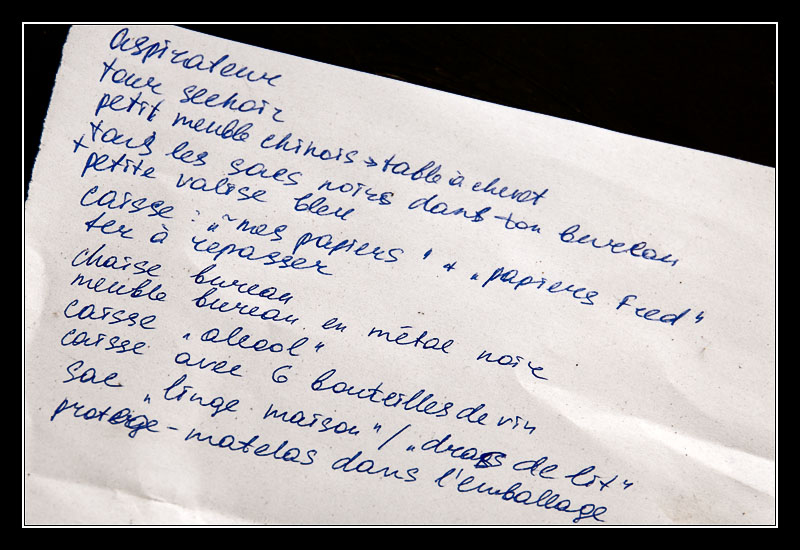 aspirateur
tour sechoir
petit meuble chinois → table à chevet
+ tous les sacs noirs dans ton bureau
petite valise bleu
caisse : „mes papiers" + „papiers Fred"
fer à repasser
chaise bureau
meuble bureau en métal noir
caisse „alcool"
caisse avec 6 bouteilles de vin
sac „linge maison" / „draps de lit"
protège-matelas dans l'emballage